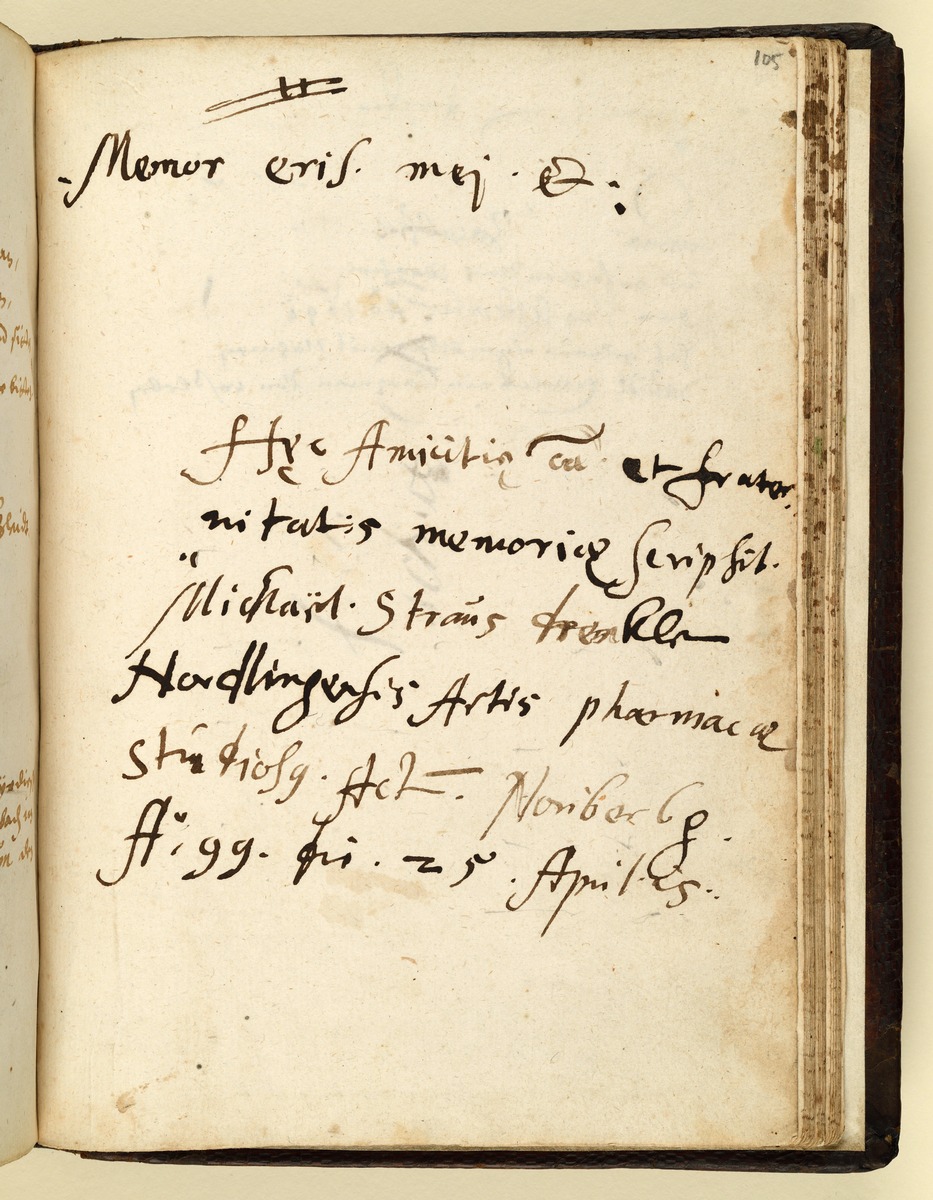 105
Memor eris. mej. &.
Hęc Amicitię cā et frater,
nitatis memoriæ scripsit.
Michaël. Straus
Nordlingensis Artis pharmacæ
Studiosq. Act. Noriberg.
Aº. 99. 25. Aprilis.